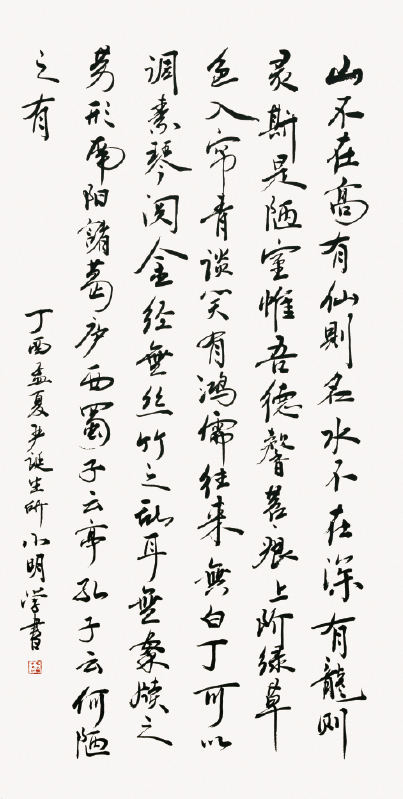 山不在高有仙則名水不在深有龍则
灵斯是陋室惟吾德馨苔痕上阶绿草
色入帘青谈笑有鸿儒往来無白丁可以
调素琴阅金经無丝竹之乱耳無案牍之
劳形南阳諸葛庐西蜀子云亭孔子云何陋
之有
丁酉孟夏诞生所小明学書